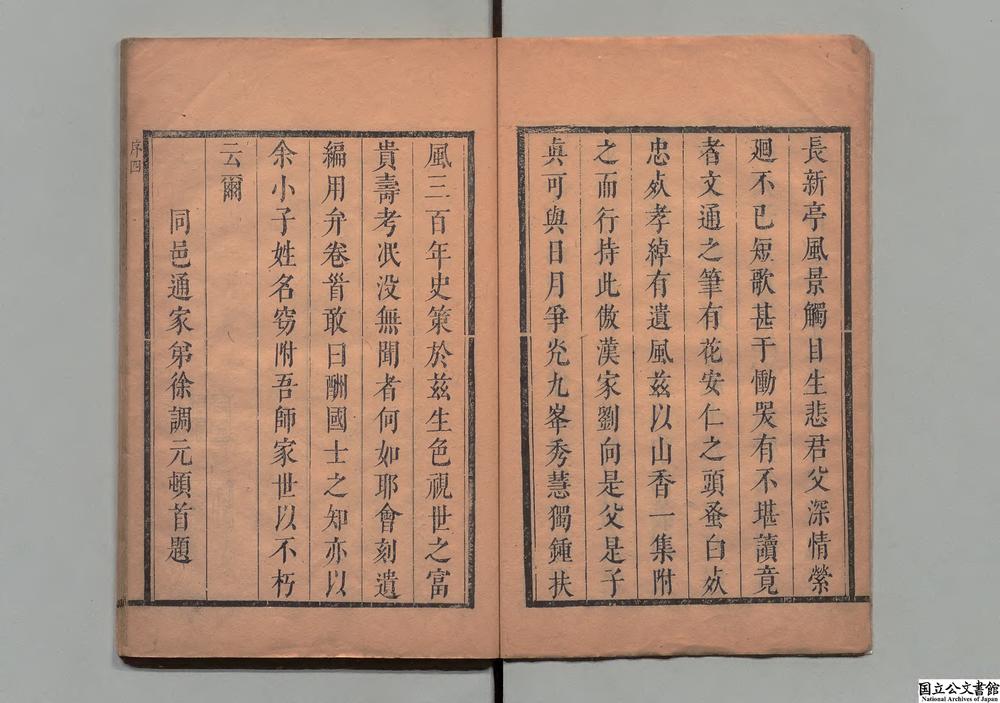 長新亭風景觸目生悲君父深情縈
廻不已短歌甚于慟哭有不堪讀竟
者文通之筆有花安仁之頭蚤白㱁
忠㱁孝綽有遺風茲以山香一集附
之而行持此傲漢家劉向是父是子
眞可與日月爭光九峯秀慧獨鍾扶
風三百年史策於茲生色視世之富
貴壽考泯没無聞者何如耶會刻遺
編用弁卷首敢曰酬國士之知亦以
余小子姓名窃附吾師家世以不朽
云爾
同邑通家弟徐調元頓首題
序四
国立公文書館
National Archives of Japan